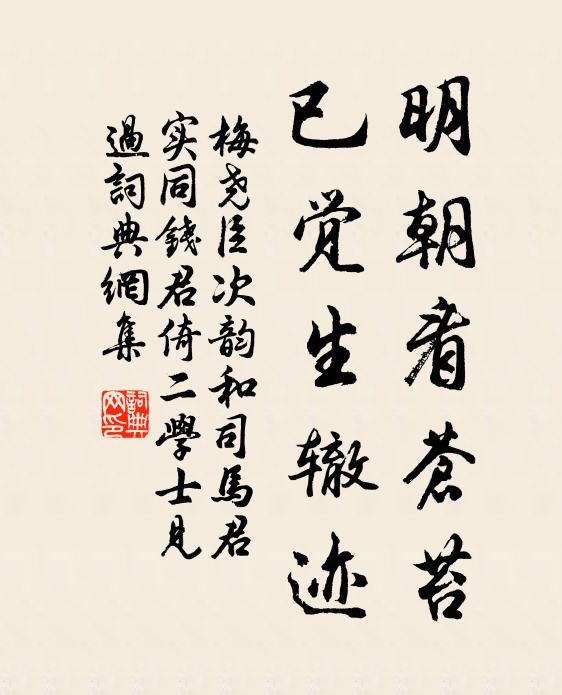 明朝看蒼苔
已觉生辙迹
梅尧臣次韵和司馬君
实同錢君倚二學士見
過詞典網集
詞典
网印